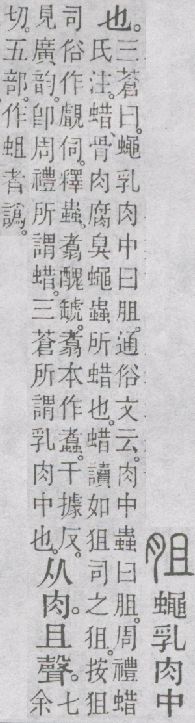 䏣 蠅乳肉中
也。三蒼曰。蠅乳肉中曰䏣。通俗文云。肉中蟲曰䏣。周禮蜡
氏注。蜡、骨肉腐臭蠅蟲所蜡也。蜡讀如狙司之狙。按狙
司俗作覰伺。釋蟲。翥醜罅。翥本作。干據反。
見廣韵。卽周禮所謂蜡。三蒼所謂乳肉中也。从肉。且聲。七余
切。五部。作蛆者譌。